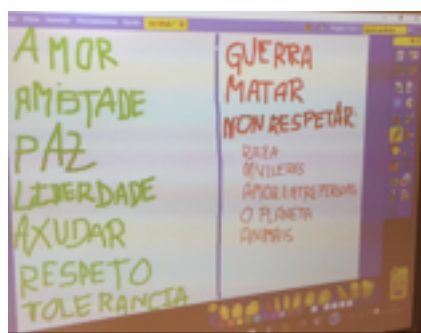 AMOR
AMISTADE
PAZ
LIBERDADE
AXUDAR
RESPETO
TOLERANCIA
GUERRA
MATAR
NON RESPETAR:
RAZA
MULLERES
AMOR ENTRE PERSOAS
O PLANETA
ANIMAIS